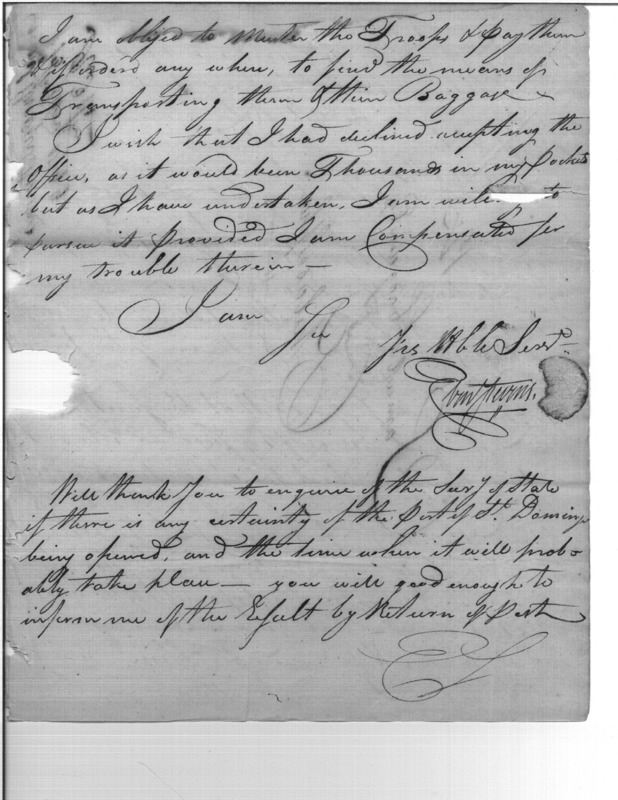 I am obliged to Muster the Troops & Pay them
& if orderd any where, to find the means of
Transporting them & their Baggage
I wish that I had declined accepting the
Office, as it would been Thousands in my Pocket
but as I have undertaken, I am will to
pursue it provided I am Compensated for
my trouble therein —
I am
Sir
Yrs Hble Servt
Eben Stevens.
Will thank You to enquire of the Secy of State
if there is any certainty of the Port of St. Domingo
being opened, and the time when it will prob-
ably take place — you will good enough to
inform me of the Result by Return of Post
ES